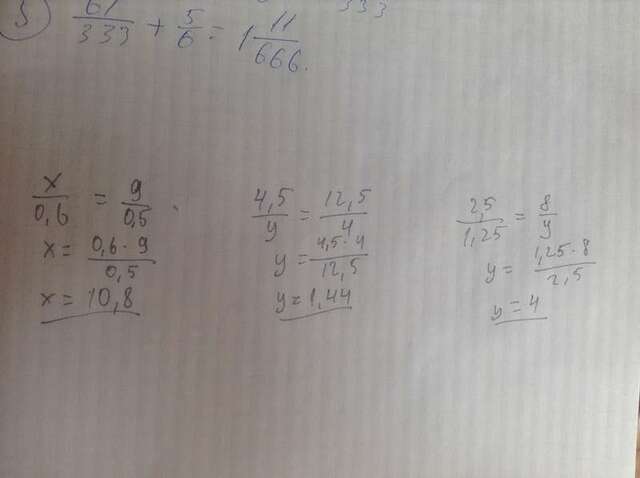 3) 61/333 + 5/6 = 1 11/666.
333
x/0,6 = 9/0,5
x = 0,6·9/0,5
x = 10,8
4,5/y = 12,5/4
y = 4,5·4/12,5
y = 1,44
2,5/1,25 = 8/y
y = 1,25·8/2,5
y = 4